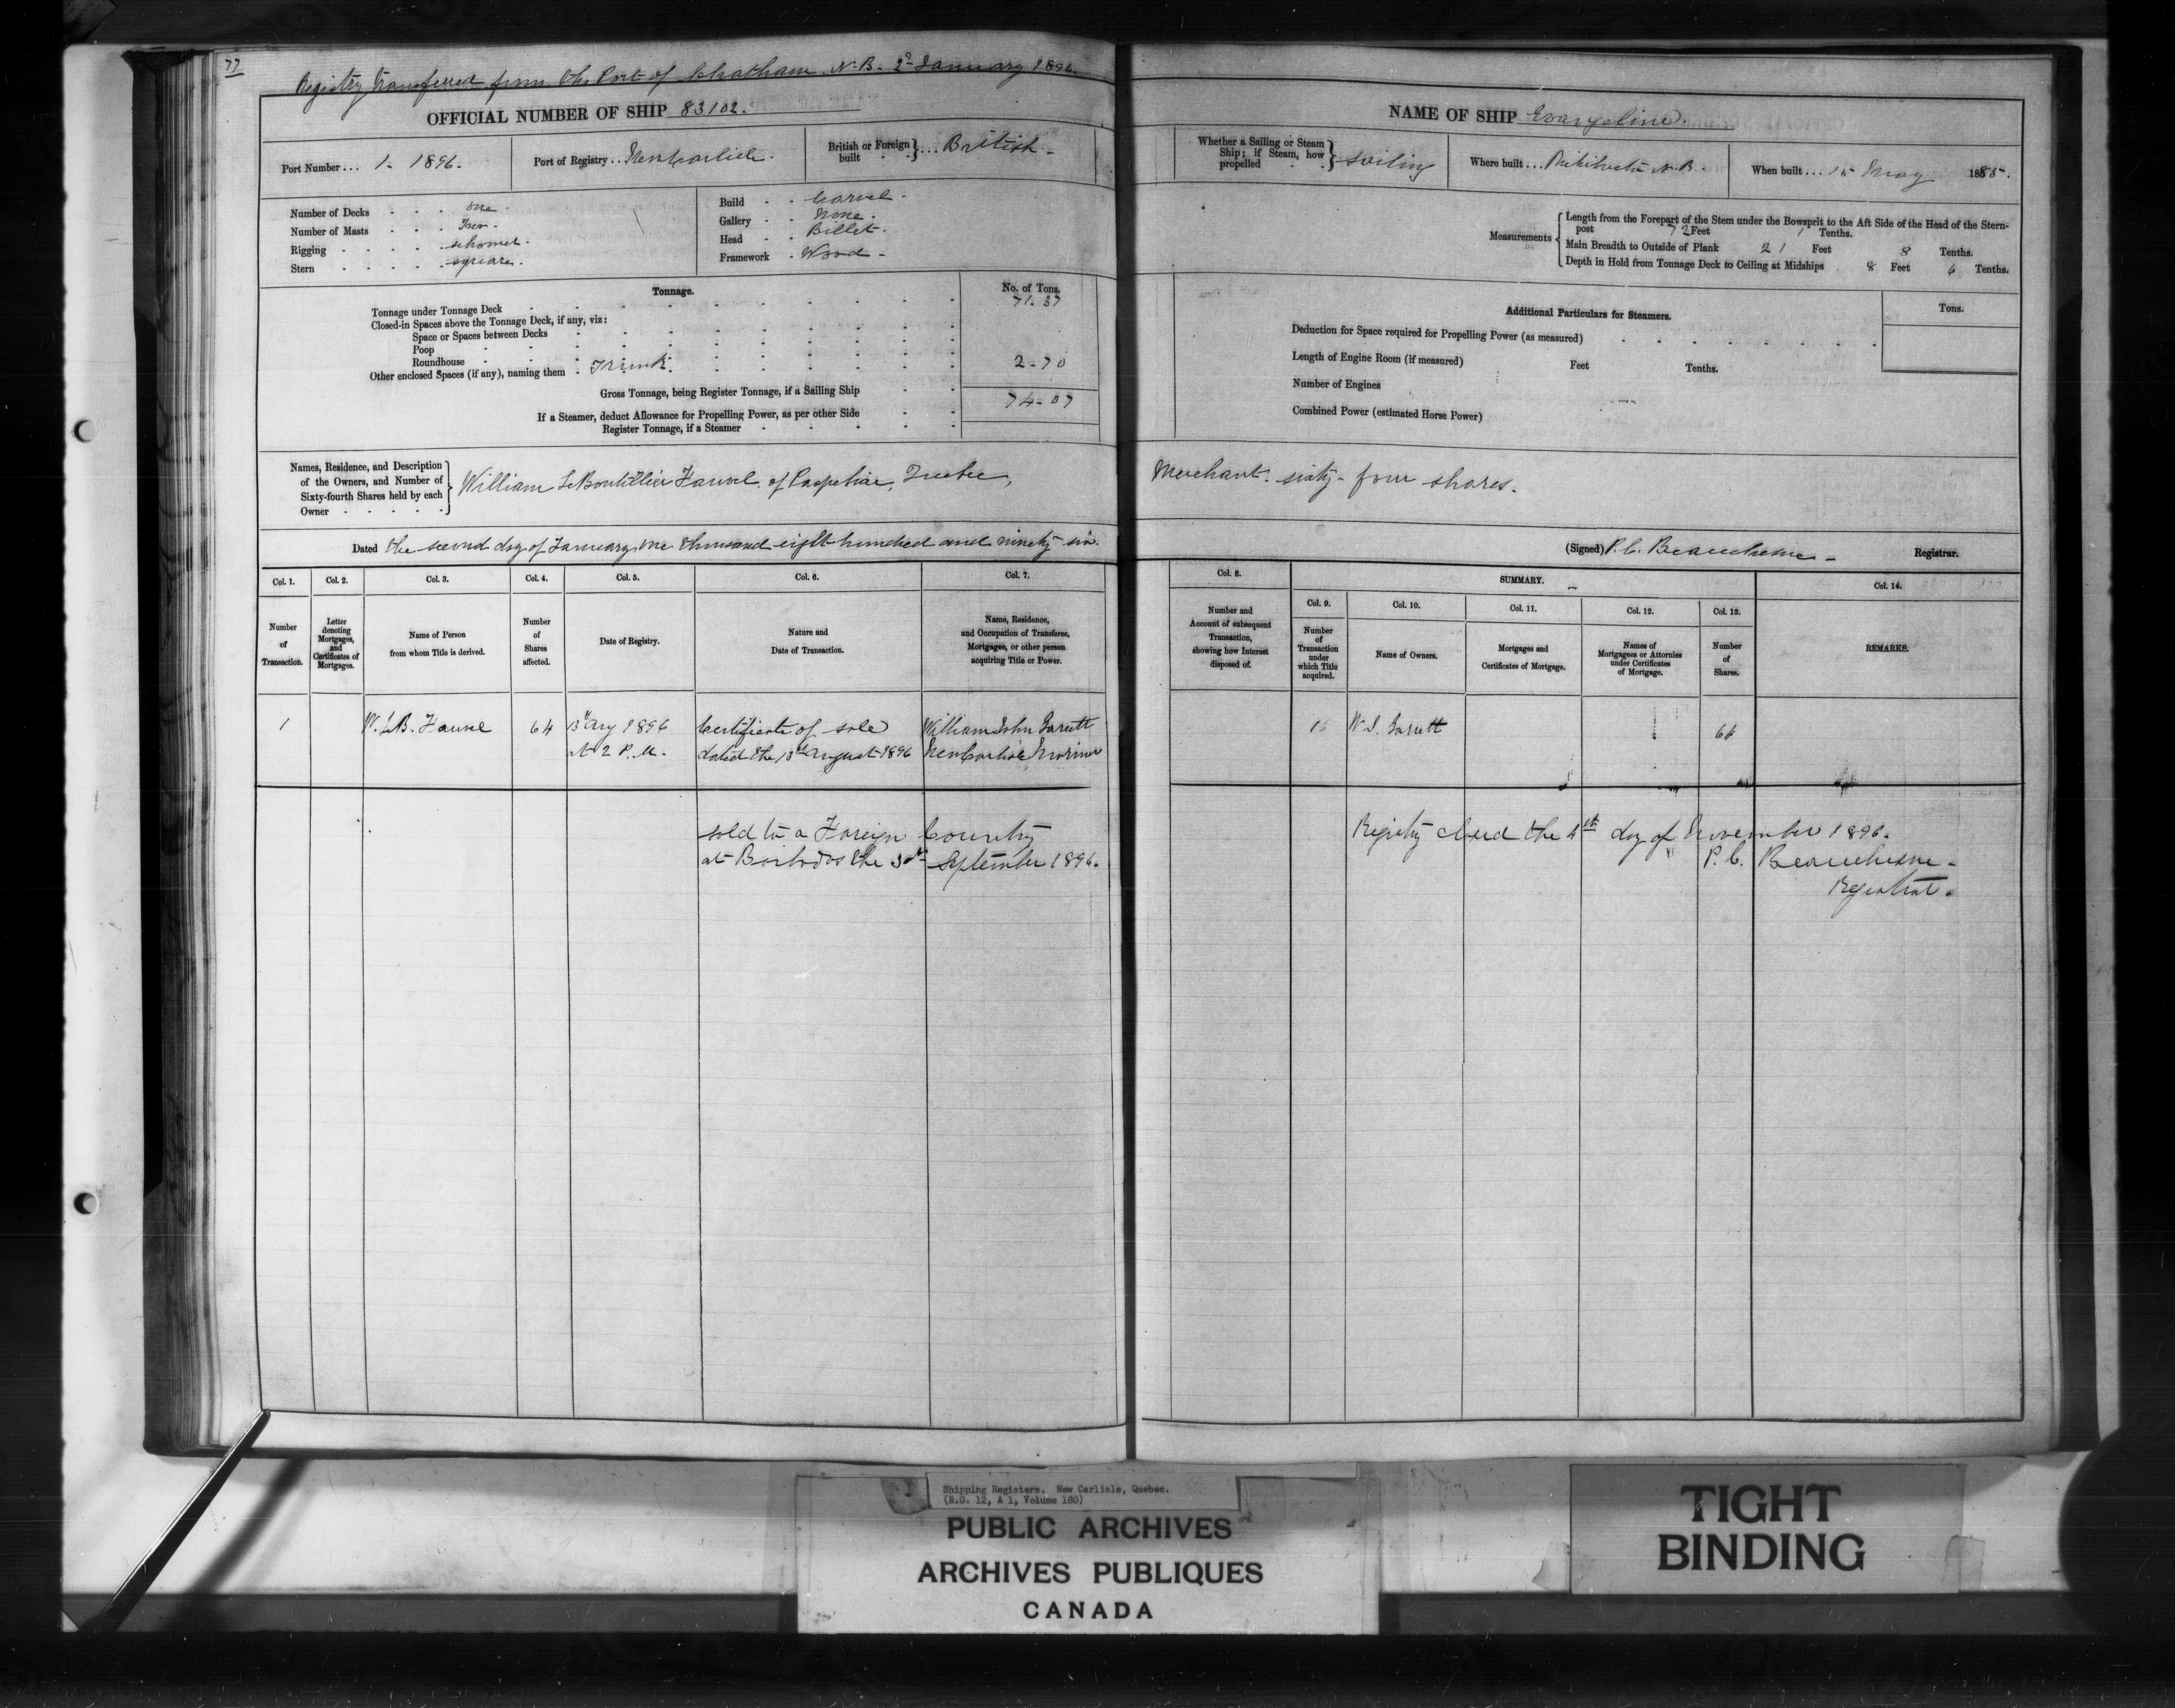 77
Registry Transferred from the Port of Chatham N.B. 2d January 1896.
OFFICIAL NUMBER OF SHIP 83102.
Port Number . . . 1 - 1896 -
Port of Registry . . New Carlisle .
British or Foreign built } . . . British -
Number of Decks . . . one -
Number of Masts . . . Two -
Rigging . . . . . schooner .
Stern . . . . . square .
Build . . Carvel .
Gallery . . None .
Head . . Billet .
Framework . Wood -
Tonnage.
No. of Tons.
Tonnage under Tonnage Deck 71-37
Closed-in Spaces above the Tonnage Deck, if any, viz:
Space or Spaces between Decks
Poop
Roundhouse
Other enclosed Spaces (if any), naming them . Trunk . 2-70
Gross Tonnage, being Register Tonnage, if a Sailing Ship 74-07
If a Steamer, deduct Allowance for Propelling Power, as per other Side
Register Tonnage, if a Steamer
Names, Residence, and Description
of the Owners, and Number of
Sixty-fourth Shares held by each
Owner
William LeBoutillier Fauvel, of Paspebiac, Quebec,
Dated the second day of January one thousand eight hundred and ninety six.
Col. 1. Col. 2. Col. 3. Col. 4. Col. 5. Col. 6. Col. 7.
Number of Transaction.
Letter denoting Mortgages, and Certificates of Mortgages.
Name of Person from whom Title is derived.
Number of Shares affected.
Date of Registry.
Nature and Date of Transaction.
Name, Residence, and Occupation of Transferee, Mortgagee, or other person acquiring Title or Power.
1 W. LeB. Fauvel 64 13 Aug 1896 Certificate of sale William John
at 2 P.M. dated the 13th August 1896 New Carlisle Mariner
sold to a Foreign Country
at Barbados the 3d September 1896.
NAME OF SHIP Evangeline .
Whether a Sailing or Steam Ship; if Steam, how propelled } sailing
Where built . . . Richibucto N.B.
When built . . . 15 May 1885.
Measurements
Length from the Forepart of the Stem under the Bowsprit to the Aft Side of the Head of the Stern-
post 72 Feet 1 Tenths.
Main Breadth to Outside of Plank 21 Feet 8 Tenths.
Depth in Hold from Tonnage Deck to Ceiling at Midships 8 Feet 6 Tenths.
Additional Particulars for Steamers.
Tons.
Deduction for Space required for Propelling Power (as measured)
Length of Engine Room (if measured) Feet Tenths.
Number of Engines
Combined Power (estimated Horse Power)
Merchant - sixty - four shares .
(Signed) P. C. Beauchesne - Registrar.
Col. 8. SUMMARY. Col. 14.
Col. 9. Col. 10. Col. 11. Col. 12. Col. 13.
Number and Account of subsequent Transaction, showing how Interest disposed of.
Number of Transaction under which Title acquired.
Name of Owners.
Mortgages and Certificates of Mortgage.
Names of Mortgagees or Attornies under Certificates of Mortgage.
Number of Shares.
REMARKS.
W. J. 64
Registry closed the 4th day of November 1896.
P. C. Beauchesne -
Registrar .
Shipping Registers. New Carlisle, Quebec.
(R.G. 12, A 1, Volume 180)
PUBLIC ARCHIVES
ARCHIVES PUBLIQUES
CANADA
TIGHT
BINDING